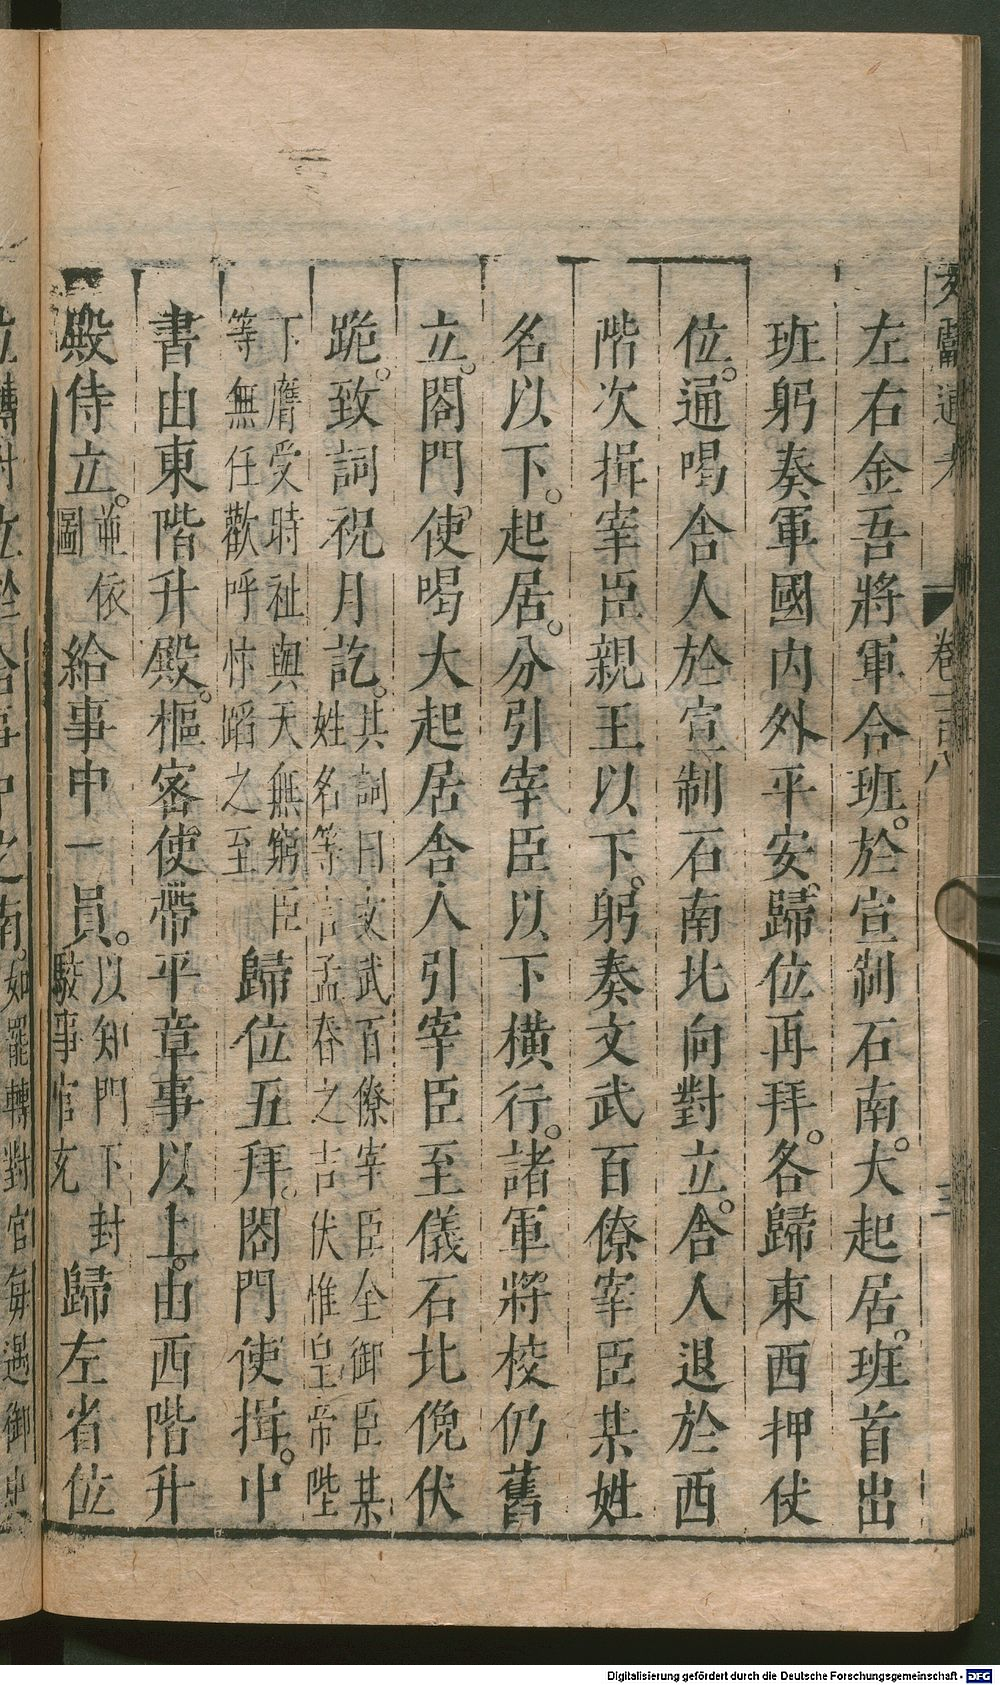 文獻通考 卷一百八 三
左右金吾將軍合班。於宣制石南。大起居。班首出
班躬奏軍國內外平安。歸位再拜。各歸東西押仗
位。通喝舍人於宣制石南北向對立。舍人退於西
階次揖宰臣親王以下。躬奏文武百僚宰臣某姓
名以下。起居。分引宰臣以下橫行。諸軍將校仍舊
立。閤門使喝大起居舍人引宰臣至儀石北俛伏
跪。致詞祝月訖。其詞曰文武百僚宰臣全御臣某
姓名等言孟春之吉伏惟皇帝陛
下膺受時祉與天無窮臣
等無任歡呼忭蹈之至歸位五拜。閤門使揖。中
書由東階升殿。樞密使帶平章事以上。由西階升
殿侍立。並依
圖給事中一員。以知門下封
駁事官充歸左省位
Digitalisierung gefördert durch die Deutsche Forschungsgemeinschaft - DFG